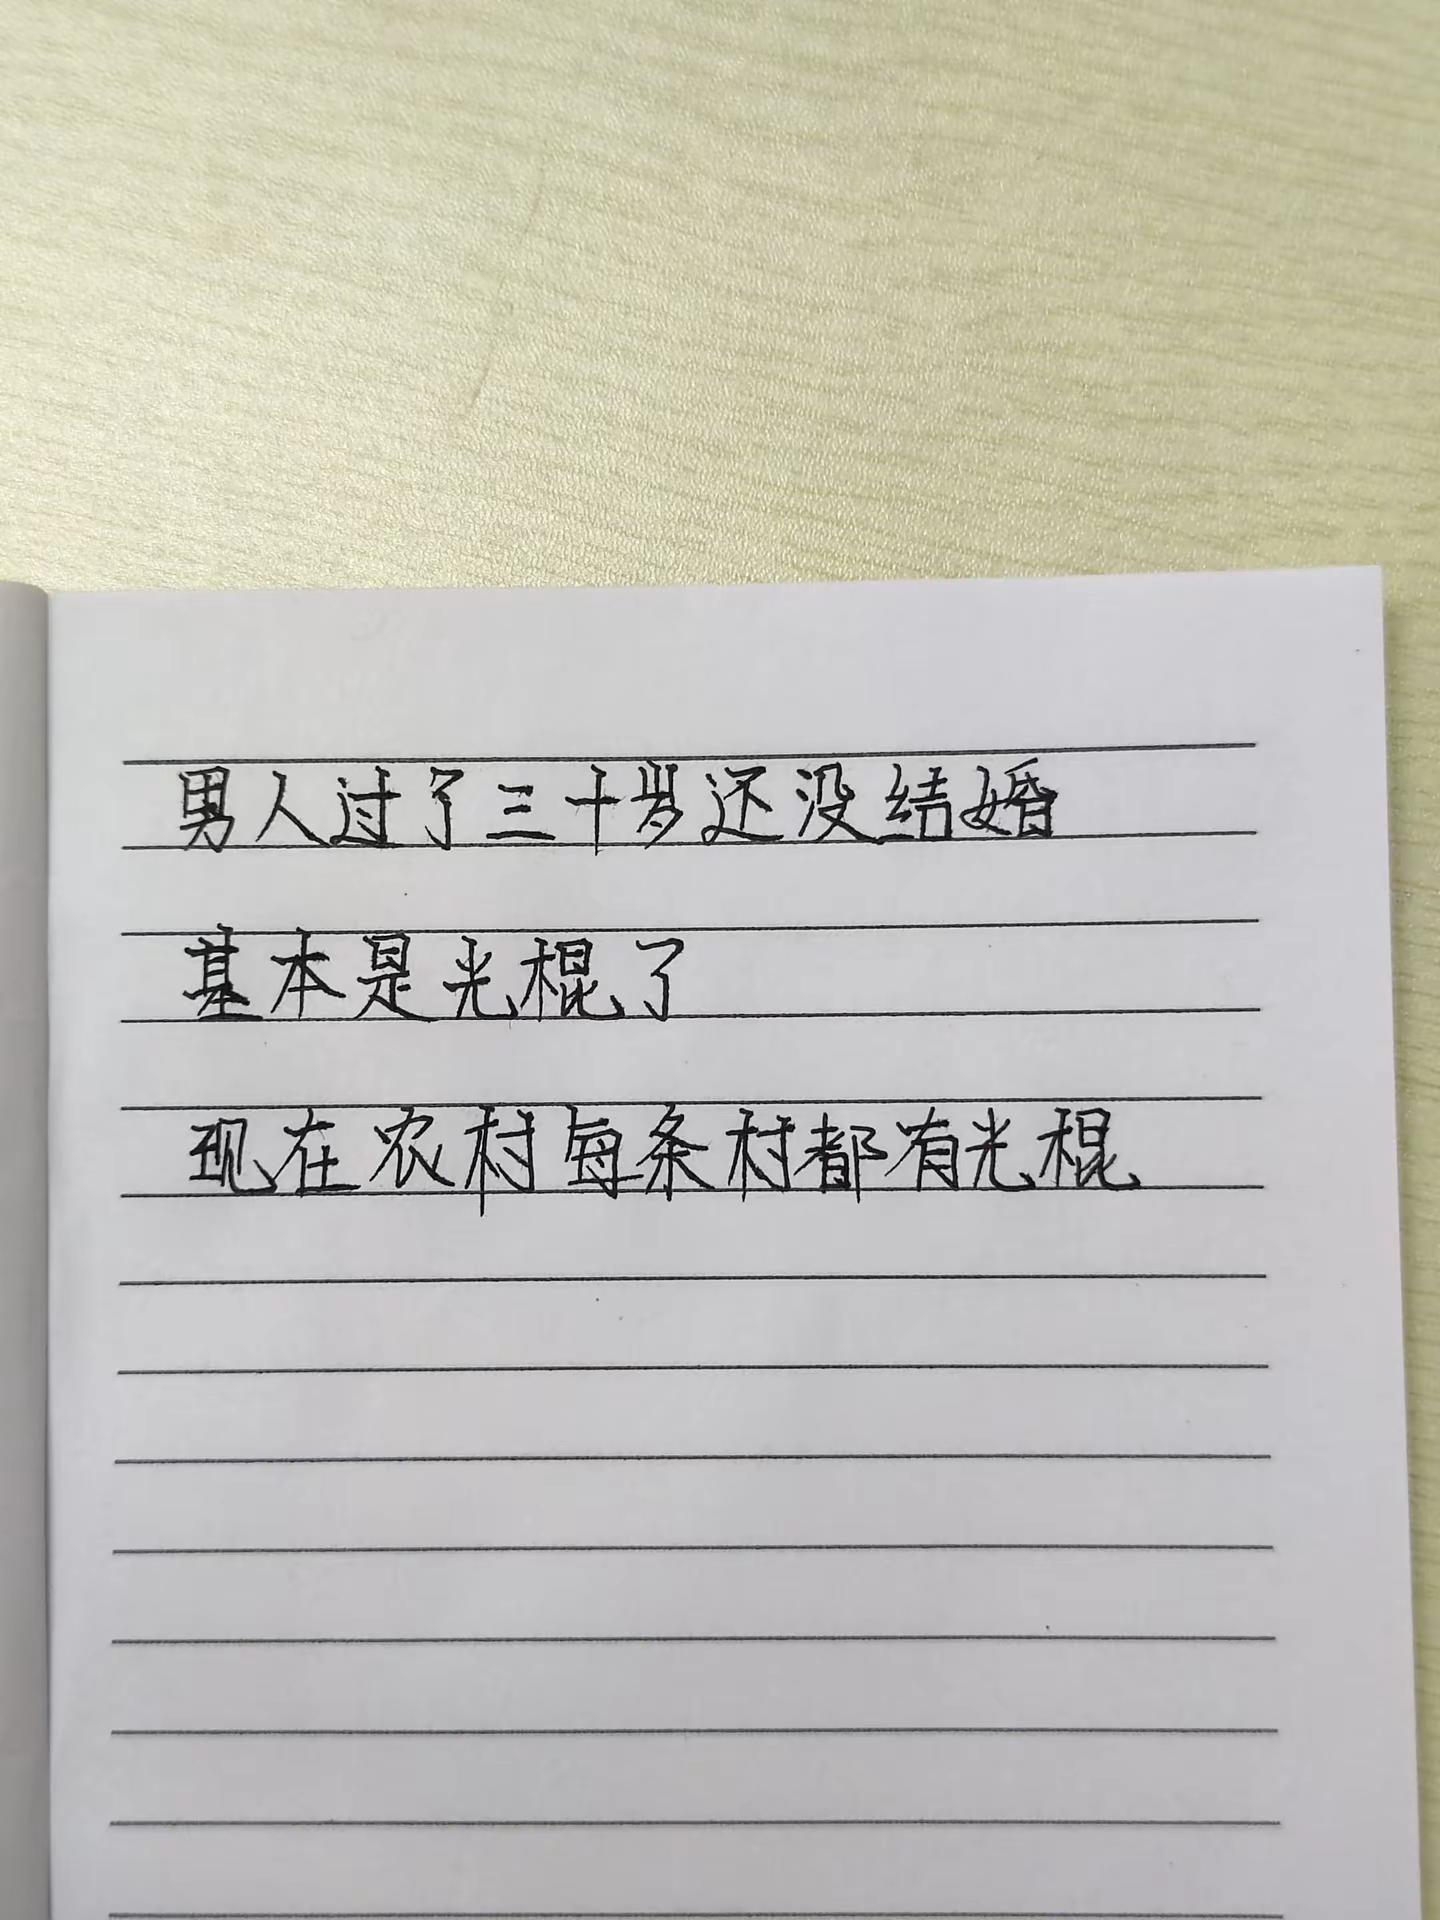 男人过了三十岁还没结婚
基本是光棍了
现在农村每条村都有光棍